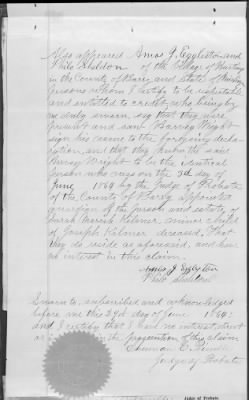 Also appeared Amos J. Eggleston and
Philo Sheldon of the Village of Hastings
in the County of Barry and State of Mich
persons whom I certify to be respectable
and entitled to credit, who being by
me duly sworn say that they were
present and saw Barney Wright
sign his name to the foregoing decla
ration, and that they know the said
Barney Wright to be the identical
person who was on the 3d day of
June 1868 by the Judge of Probate
of the County of Barry appointed
guardian of the person and estate of
Sarah Kilmer minor child
of Joseph Kilmer deceased, That
they do reside as aforesaid, and have
no interest in this claim.
Amos J Eggleston
Philo Sheldon
Sworn to, subscribed and acknowledged
before me this 29th day of June 1868:
and I certify that I had no interest direct
or in the prosecution of this claim
Sherman C.
Judge of Probate
Judge of Probate